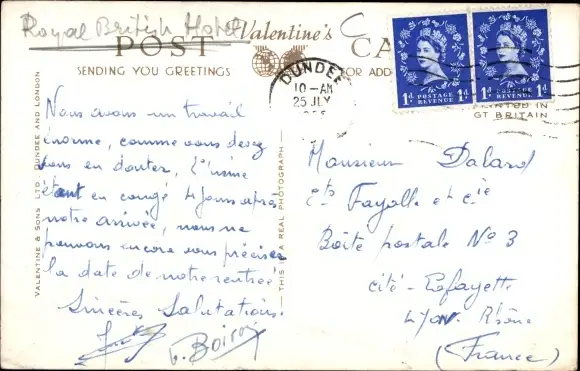 Royal British Hotel
Valentine's
POST CA
SENDING YOU GREETINGS
FOR ADD
DUNDEE
10-AM
25 JLY
1D POSTAGE REVENUE 1D
1D POSTAGE REVENUE 1D
PRINTED IN
GT BRITAIN
VALENTINE & SONS LTD. DUNDEE AND LONDON
THIS IS A REAL PHOTOGRAPH
Nous avons un travail
énorme, comme vous devez
vous en douter, l'usine
étant en congé 4 jours après
notre arrivée, nous ne
pouvons encore vous préciser
la date de notre rentrée
Sincères Salutations.
Boiron
Monsieur Dalard
Ets Fayolle et Cie
Boîte postale No 3
Cité-Lafayette
Lyon Rhône
(France)